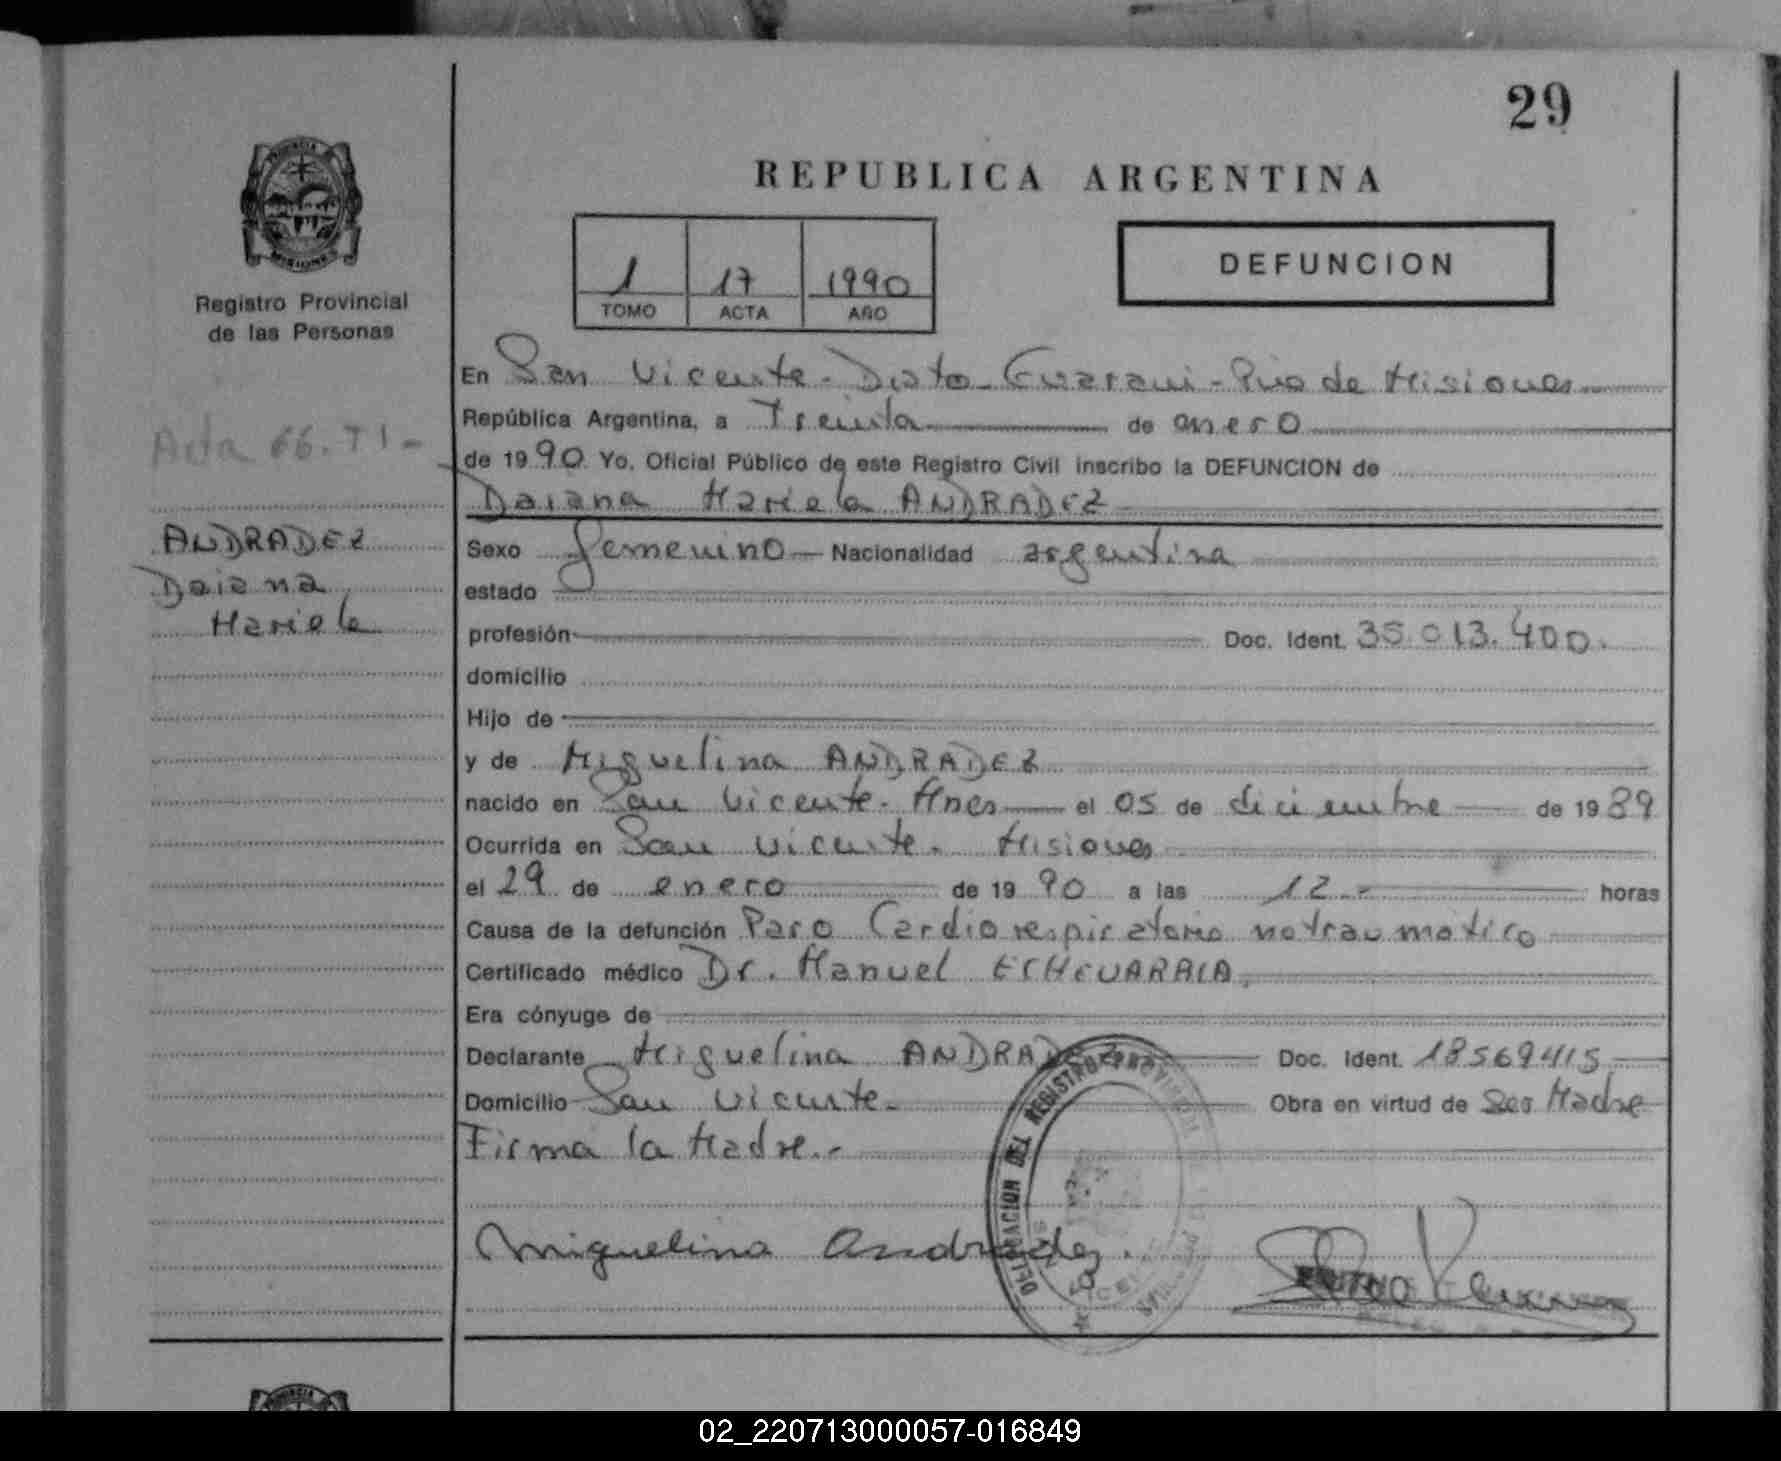 29
REPUBLICA ARGENTINA
PROVINCIA
MISIONES
Registro Provincial
de las Personas
1 17 1990
TOMO ACTA AÑO
DEFUNCION
En San Vicente - Dpto - Guarani - Pcia de Misiones
República Argentina, a Treinta de enero
Acta 66. T1 -
de 1990 Yo, Oficial Público de este Registro Civil inscribo la DEFUNCION de
Daiana Mariela ANDRADEZ
ANDRADEZ
Daiana
Mariela
Sexo femenino - Nacionalidad argentina
estado
profesión Doc. Ident. 35.013.400.
domicilio
Hijo de
y de Miguelina ANDRADEZ
nacido en San Vicente - Mnes el 05 de diciembre de 1989
Ocurrida en San Vicente - Misiones
el 29 de enero de 1990 a las 12.- horas
Causa de la defunción Paro Cardiorespiratorio no traumatico
Certificado médico Dr. Manuel ECHEVARRIA,
Era cónyuge de
Declarante Miguelina ANDRADEZ Doc. Ident. 18569415
Domicilio San Vicente - Obra en virtud de Ser Madre
Firma la Madre.-
Miguelina Andradez.
DELEGACION DEL REGISTRO PROVINCIAL
02_220713000057-016849